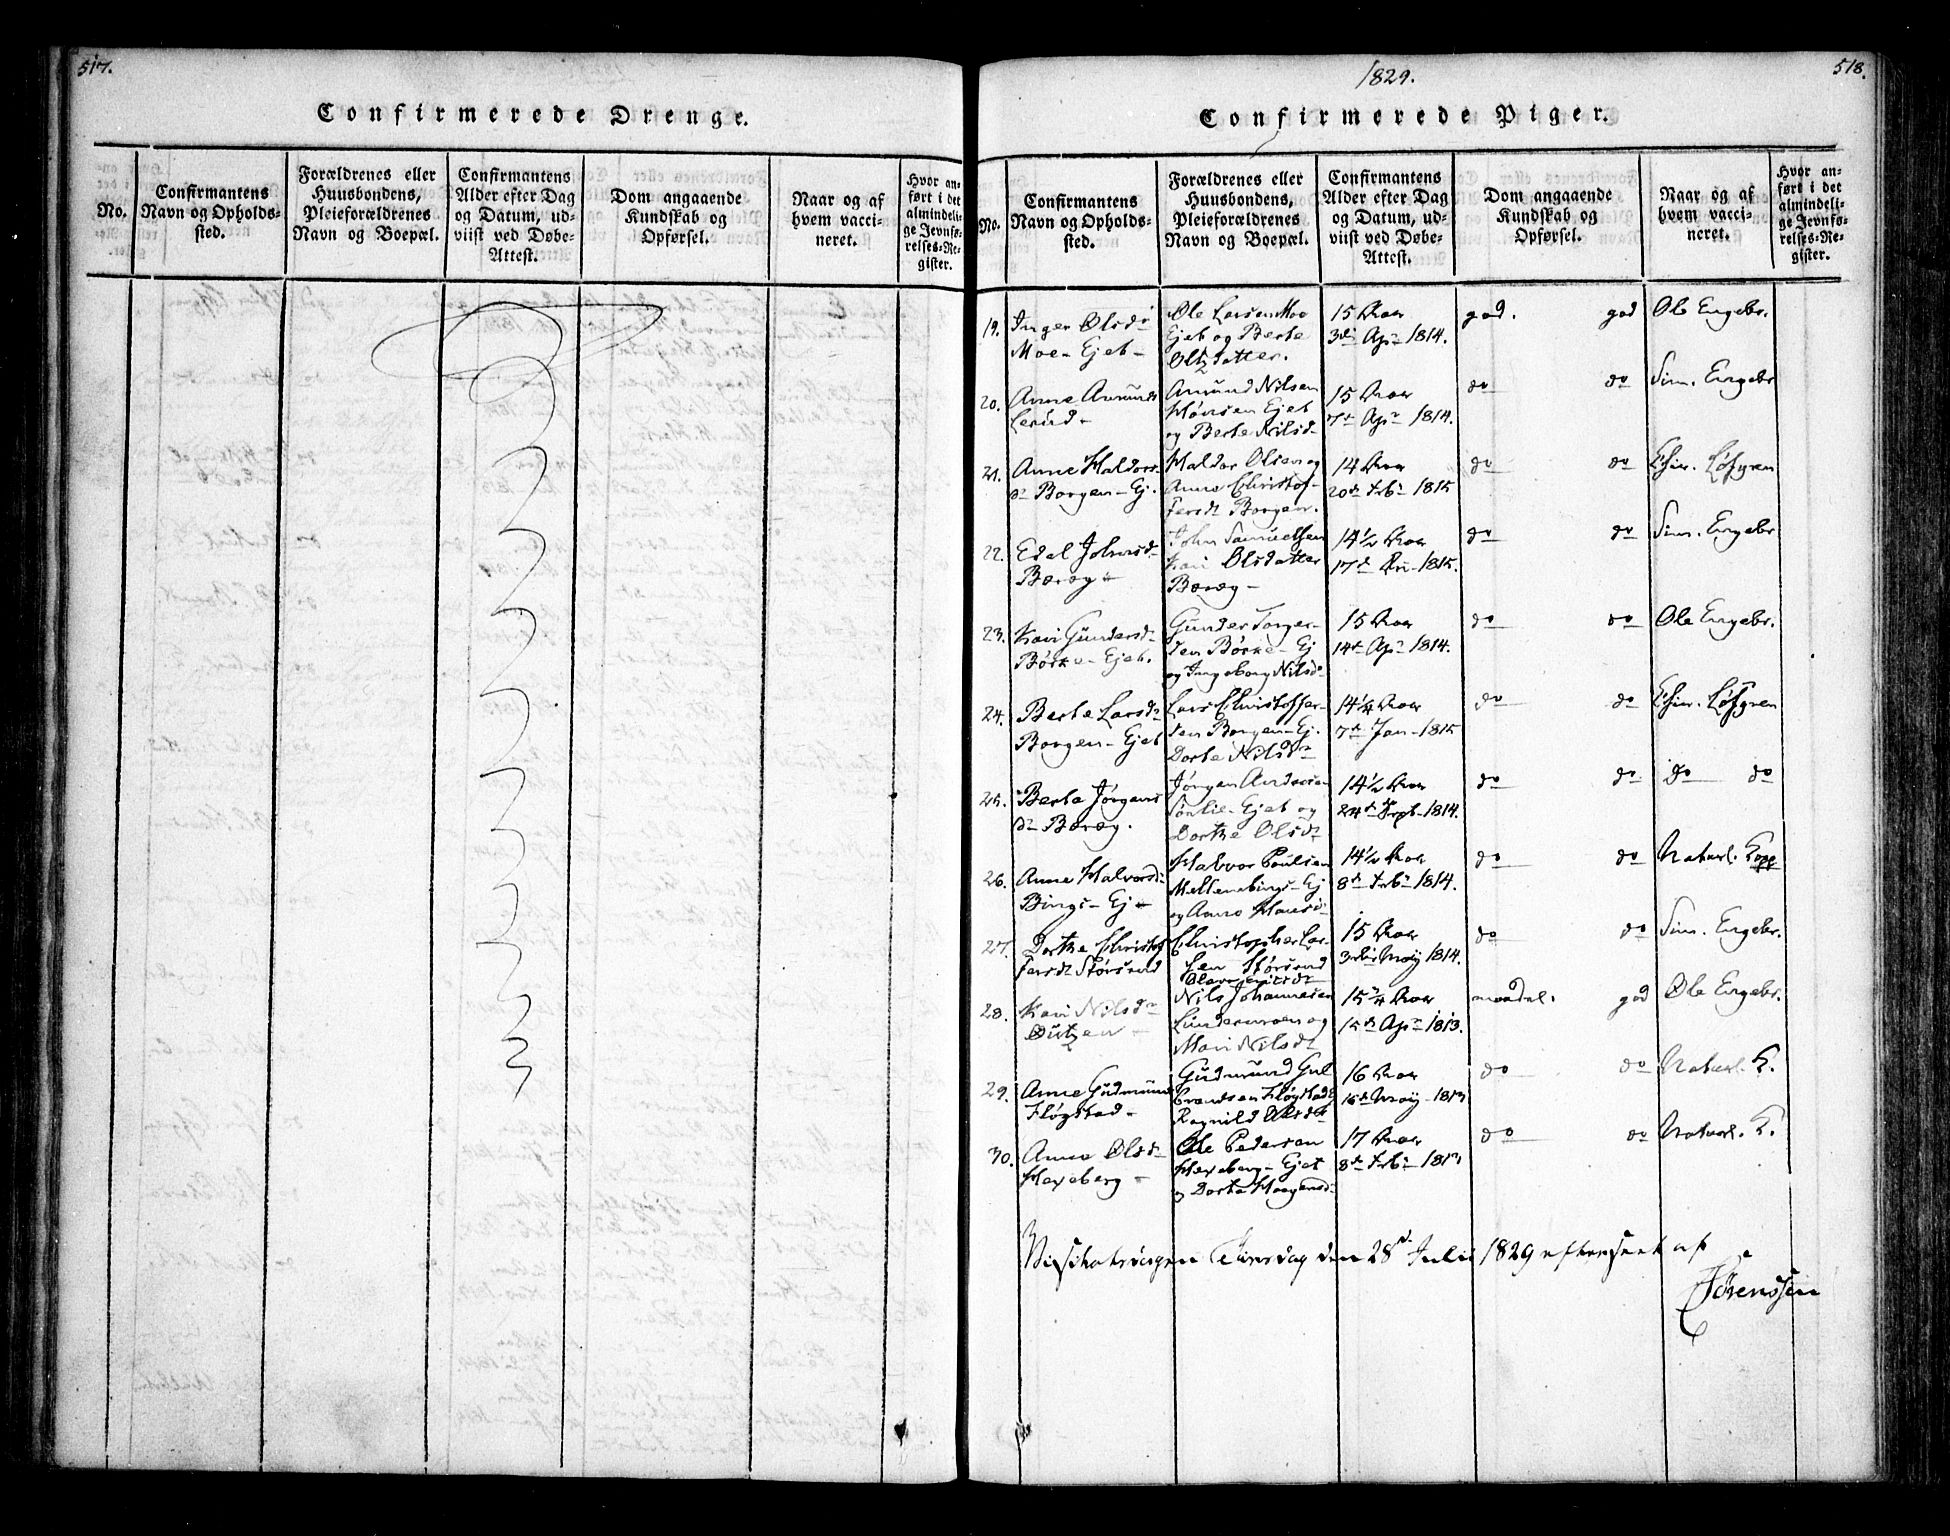 517.
Confirmerede Drenge.
No.
Confirmantens
Navn og Opholds-
sted.
Forældrenes eller
Huusbondens,
Pleieforældrenes
Navn og Boepæl.
Confirmantens
Alder efter Dag
og Datum, ud-
viist ved Døbe-
Attest.
Dom angaaende
Kundskab og
Opførsel.
Naar og af
hvem vacci-
neret.
Hvor an-
ført i det
almindeli-
ge Jevnfø-
relses-Re-
gister.
1829.
518.
Confirmerede Piger.
No.
Confirmantens
Navn og Opholds-
sted.
Forældrenes eller
Huusbondens,
Pleieforældrenes
Navn og Boepæl.
Confirmantens
Alder efter Dag
og Datum, ud-
viist ved Døbe-
Attest.
Dom angaaende
Kundskab og
Opførsel.
Naar og af
hvem vacci-
neret.
Hvor an-
ført i det
almindeli-
ge Jevnfø-
relses-Re-
gister.
19.
Inger Olsd
Moe- Ejet-
Ole Larsen Moe
Ejet og Berte
Olsdatter.
15 Aar
3die Apr 1814.
god. god
Ole Engebr.
20.
Anne Amunds
Lerud-
Amund Nilsen
Ejet
og Berte Nilsd-
15 Aar
7de Apr 1814.
do do
Sim. Engebr
21.
Anne Haldors
dr Borgen- Ej.
Haldor Olsen og
Anne Christof-
fersdt Borgen.
14 Aar
20de Feb 1815
do do
Chir. Løfgren
22.
Edel Johnsd
John Samuelsen
Kari Olsdatter
14 1/2 Aar
17de 1815.
do do
Sim. Engebr
23.
Kari Gundersdr
Børke- Ejet.
Gunder Torger-
sen Børke- Ej
og Ingeborg Nilsd
15 Aar
14de Apr 1814.
do do
Ole Engebr.
24.
Berte Larsdr
Borgen- Ejet
Lars Christoffer-
sen Borgen- Ej.
Dorte Nilsdr
14 1/4 Aar
7de Jan- 1815
do do
Chir. Løfgren
25.
Berte Jørgens
dr
Jørgen Andersen
Ejet og
Dorthe Olsdr
14 1/2 Aar
24de Sept- 1814.
do do
Do do
26.
Anne Halvorsd
Bings- Ej
Halvor Poulsen
Mellembings- Ej
og Anne Hansd
14 1/2 Aar
8de Feb 1814.
do do
Naturl. Kopp
27.
Dorthe Christof
fersdt Størsrud
Christopher Lar-
sen Størsrud
15 Aar
3die May 1814.
do do
Sim. Engebr.
28.
Kari Nilsdr
Nils Johannesen
og
Mari Nilsdt
15 3/4 Aar
15de Apr 1813.
maadel. god
Ole Engebr.
29.
Anne Gudmunds
Fløgstad-
Gudmund Gul
brandsen Fløgstad
Ragnild Olsdt
16 Aar
16de May- 1813
do do
Naturl. K.
30.
Anne Olsdr
Hexeberg-
Ole Pedersen
Hexeberg- Ejet
og Dorte Haagensd
17 Aar
8de Feb 1813
do do
Naturl. K.
Tirsdag den 28de Julii 1829 efterseet af
Sørenssen